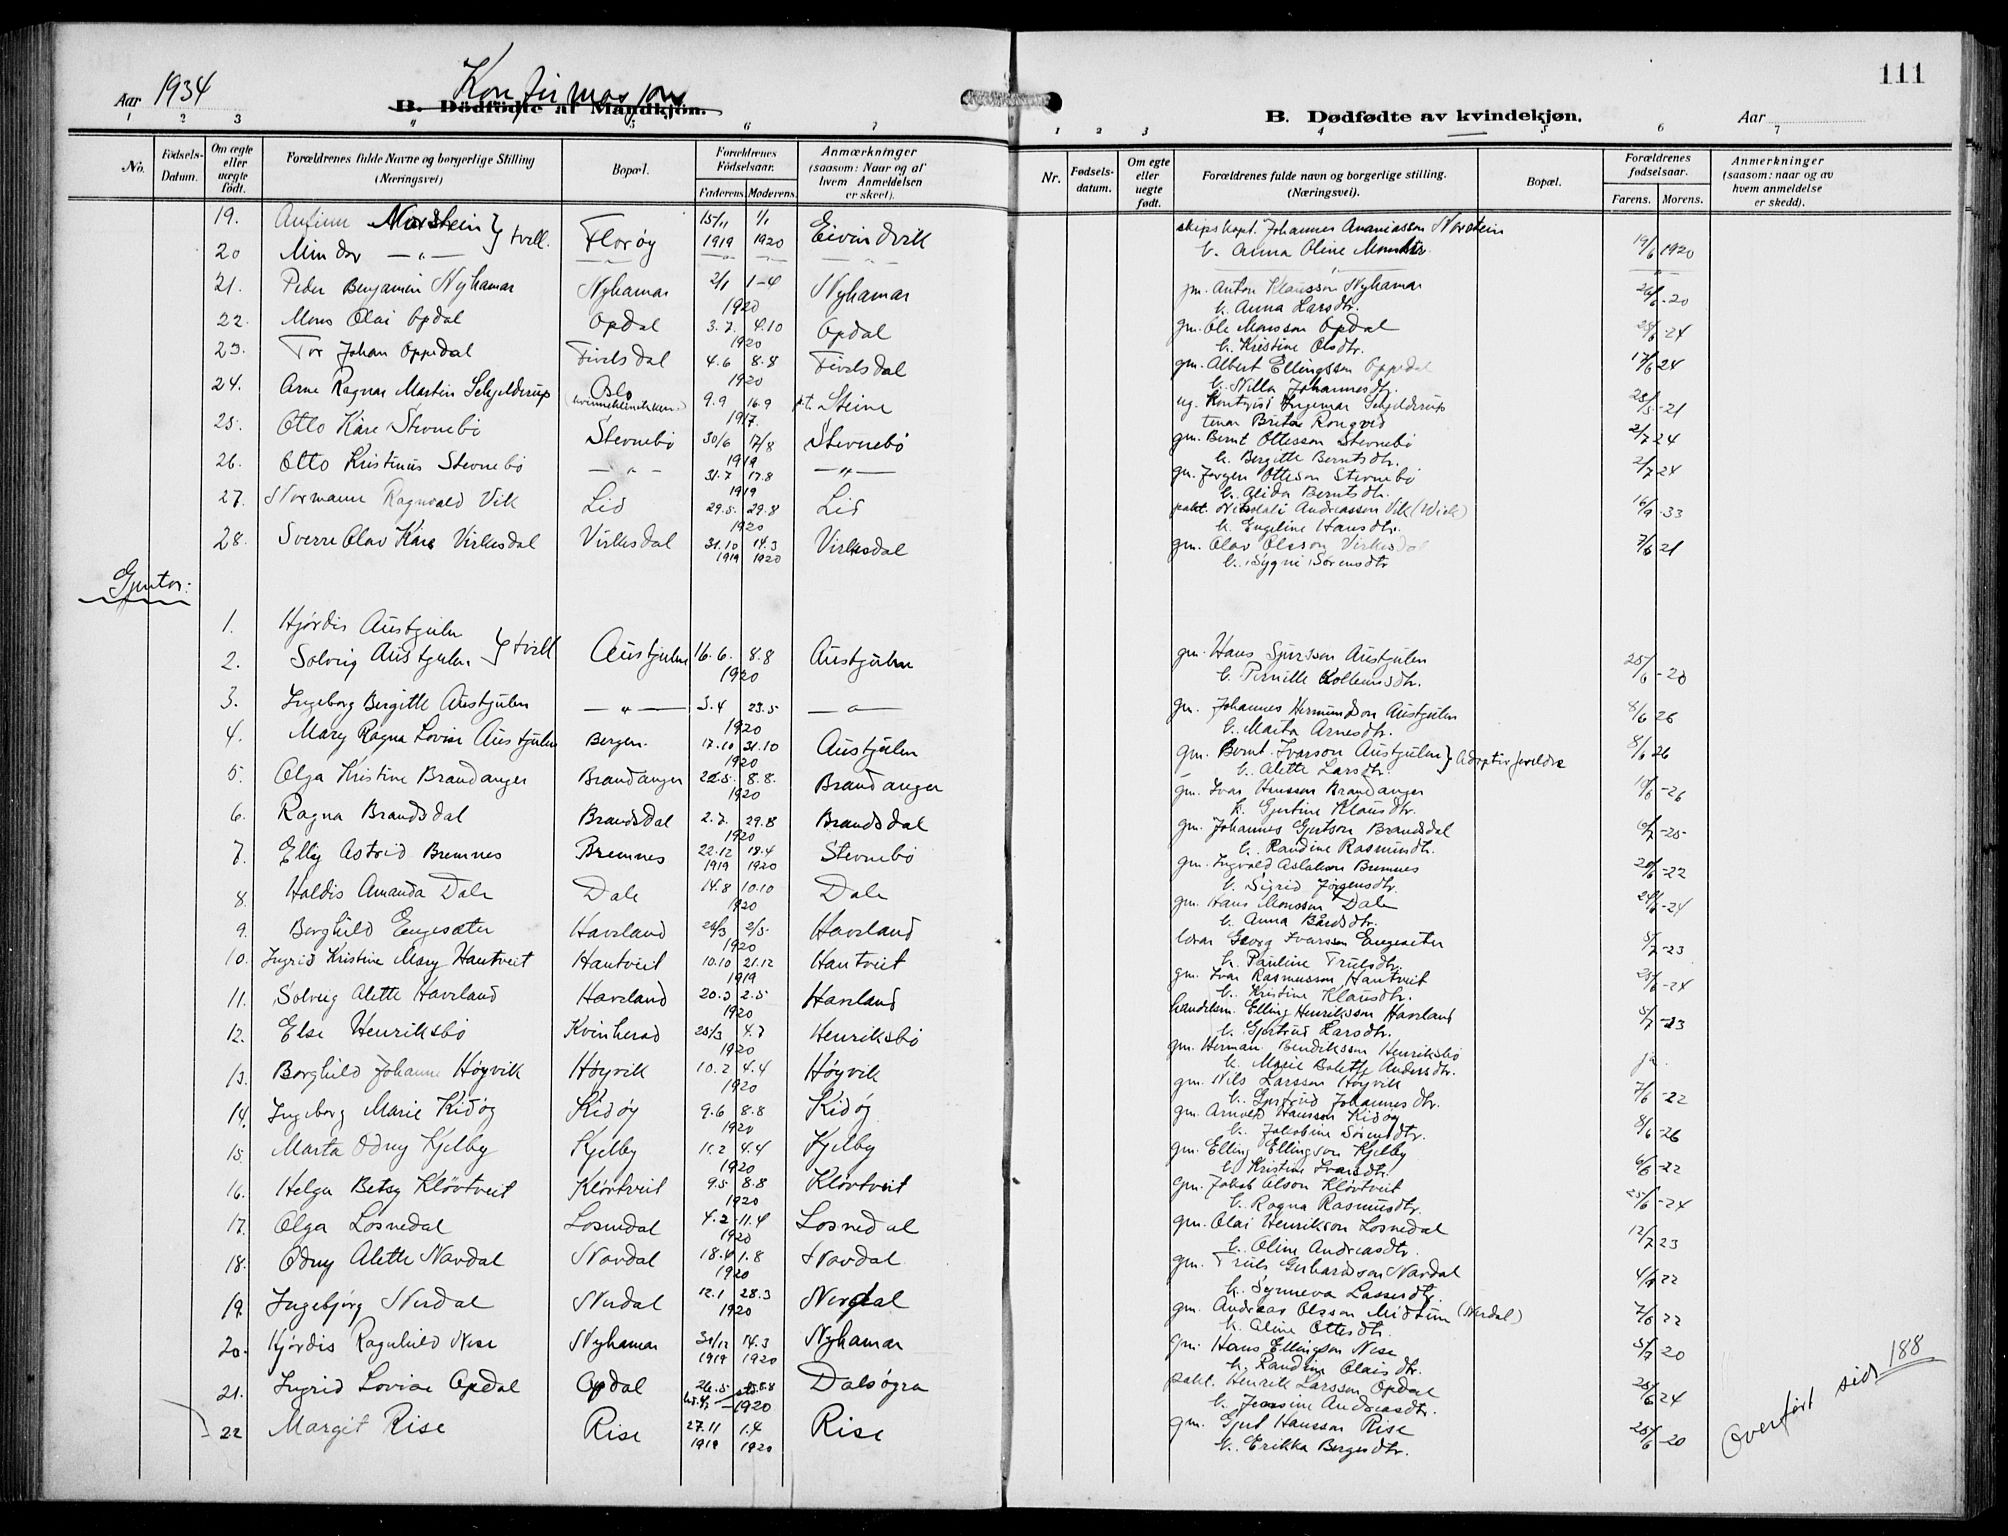 Aar 1934
Konfirmasjon
B. Dödfödte af Mandkjøn.
1 2 3 4 5 6 7
No.
Födsels-Datum.
Om ægte eller uægte födt.
Forældrenes fulde Navne og borgerlige Stilling (Næringsvei)
Bopæl.
Forældrenes Födselsaar.
Faderens. Moderens.
Anmærkninger (saasom: Naar og af hvem Anmeldelsen er skeet).
19. Anfinn Norstein } tvill. Florøy 15/11 1919 1/1 1920 Eivindvik
20 Mindor — " —
21. Peder Benjamin Nyhamar Nyhamar 2/1 1-4 1920 Nyhamar
22. Mons Olai Opdal Opdal 3.7. 4.10 1920 Opdal
23. Tor Johan Oppedal Fivelsdal 4.6 8.8 1920 Fivelsdal
24. Arne Ragnar Martin Schjelderup Oslo 9.9 16.9 1917. p.t. Steine
25. Otto Kåre Stevnebö Stevnebö 30/6 17/8 1919 Stevnebö
26. Otto Kristinus Stevnebö — " — 31.7 17.8 1919 — " —
27. Normann Ragnvald Vik Lid 29.5. 29.8 1920 Lid
28. Sverre Olav Kåre Virkesdal Virkesdal 31.10 1919 14.3 1920 Virkesdal
Gjentor:
1. Hjördis Austgulen
2. Solveig Austgulen } tvill Austgulen 16.6. 8.8 1920 Austgulen
3. Ingeborg Bergitte Austgulen — " — 3.4 23.5 1920 — " —
4. Mary Ragna Lovise Austgulen Bergen. 17.10 31.10 1920 Austgulen
5. Olga Kristine Brandanger Brandanger 22.5. 8.8. 1920 Brandanger
6. Ragna Brandsdal Brandsdal 2.7. 29.8 1920 Brandsdal
7. Elly Astrid Bremnes Bremnes 22.12 1919 18.4 1920 Stevnebö
8. Haldis Amanda Dale Dale 14.8 10.10 1920 Dale
9. Borghild Engesæter Haveland 26/3 2/5 1920 Haveland
10. Ingrid Kristine Mary Hantveit Hantveit 10.10 21.12 1919 Hantveit
11. Solveig Alette Haveland Haveland 20.3 2.5 1920 Haveland
12. Else Henriksbö Kvinherad 25/3 4.7 1920 Henriksbö
13. Borghild Johanne Höyvik Höyvik 10.2 4.4 1920 Höyvik
14. Ingeborg Marie Kidöy Kidöy 9.6 8.8 1920 Kidöy
15. Marta Odny Kjelby Kjelby 11.2 4.4 1920 Kjelby
16. Helga Betsy Klövtveit Klövtveit 9.5 8.8 1920 Klövtveit
17. Olga Losnedal Losnedal 4.2 11.4 1920 Losnedal
18. Odny Alette Nordal Nordal 18.4 1.8 1920 Nordal
19. Ingebjörg Nerdal Nerdal 12.1 28.3 1920 Nerdal
20. Hjördis Ragnhild Nese Nyhamar 31/12 1919 14.3 1920 Nyhamar
21. Ingrid Lovise Opdal Opdal 26.5 8.8 1920 Dalsögra
22 Margit Rise Rise 27.11 1919 1.4 1920 Rise
111
B. Dødfødte av kvindekjøn.
Aar
1 2 3 4 5 6 7
Nr.
Fødsels-datum.
Om egte eller uegte født.
Forældrenes fulde navn og borgerlige stilling. (Næringsvei).
Bopæl.
Forældrenes fødselsaar.
Farens. Morens.
Anmerkninger (saasom: naar og av hvem anmeldelse er skedd).
skipskapt. Johannes Ananiasson Norstein
h. Anna Oline Monsdtr. 19/6 1920
gm. Anton Klausson Nyhamar
h. Anna Larsdtr. 26/6 -20
gm. Ole Monsson Opdal
h. Kristine Olsdtr. 25/6 -24
gm. Albert Ellingsson Oppedal
h. Nilla Johannesdtr. 17/6 24
ug. Kontorist Ingemar Schjelderup
tenar Brita Rongved 28/5 -21
gm. Bernt Ottesson Stevnebö
h. Bergitte Berntsdtr. 2/7 24
gm. Jörgen Otteson Stevnebö
h. Alida Berntsdtr. 2/7 24
pakt. Nikolai Andreasson Vik (Wick)
h. Engeline Hansdtr. 16/9 -33
gm. Olav Olsson Virkesdal
h. Sygni Sörensdtr 7/6 21
gm. Hans Sjursson Austgulen
h. Pernille Kolbeinsdtr. 25/6 -20
gm. Johannes Hermundson Austgulen
h. Marta Arnesdtr. 8/6 26
gm. Bernt Ivarson Austgulen } Adoptivforeldre
h. Alette Larsdtr. 8/6 26
gm. Ivar Hansson Brandanger
h. Gjertine Klausdtr. 10/6 -26
gm. Johannes Gjertson Brandsdal
h. Randine Rasmusdtr. 6/7 -25
gm. Ingvald Aslakson Bremnes
h. Sigrid Jörgensdtr. 20/6 -22
gm. Hans Monsson Dale
h. Anna Bårdsdtr. 24/6 -24
lærar Georg Ivarsson Engesæter
h. Pauline Trulsdtr. 5/7 -23
gm. Ivar Rasmusson Hantveit
h. Kristine Klausdtr. 25/6 -24
handelsm. Elling Henriksson Haveland
h. Gjertrud Larsdtr. 5/7 -23
gm. Herman Bendiksson Henriksbö
h. Marie Bolette Andersdtr. ja.
gm. Nils Larsson Höyvik
h. Gjertrud Johannesdtr. 7/6 -22
gm. Arnold Hansson Kidöy
h. Jakobine Sörensdtr. 8/6 -26
gm. Elling Ellingson Kjelby
h. Kristine Ivarsdtr. 6/6 -22
gm. Jakob Olson Klövtveit
h. Ragna Rasmusdtr. 25/6 -24
gm. Olai Henrikson Losnedal
h. Oline Andreasdtr. 12/7 23
gm. Truls Gerhardsson Nordal
h. Synneva Lassesdtr. 4/6 22
gm. Andreas Olsson Midtun (Nerdal)
h. Oline Ottesdtr. 7/6 22
gm. Hans Ellingson Nese
h. Randine Olaisdtr. 5/7 20
pakt. Henrik Larsson Opdal
h. Jensine Andreasdtr. 25/6 24
gm. Gjert Hansson Rise
h. Erikka Bergesdtr. 25/6 -20
Overfört side 188